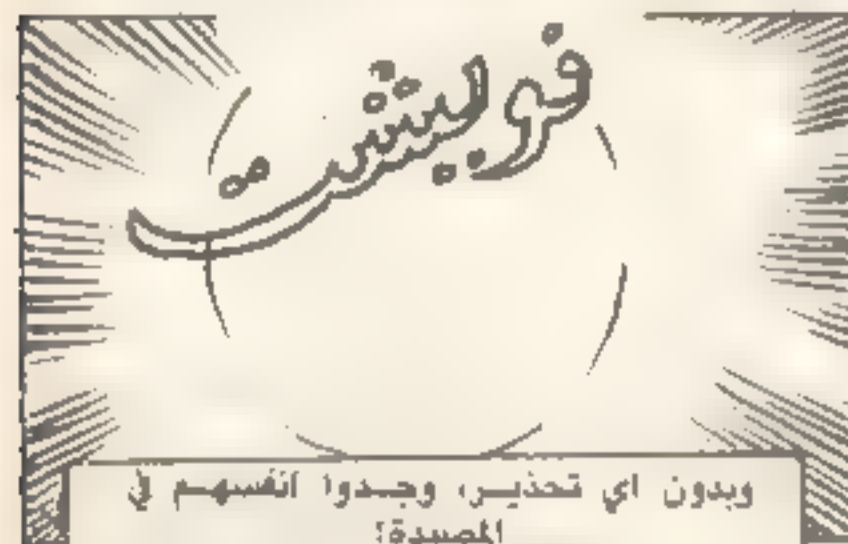 فويشت
وبدون اي تحذير، وجدوا انفسهم في
المصيدة!